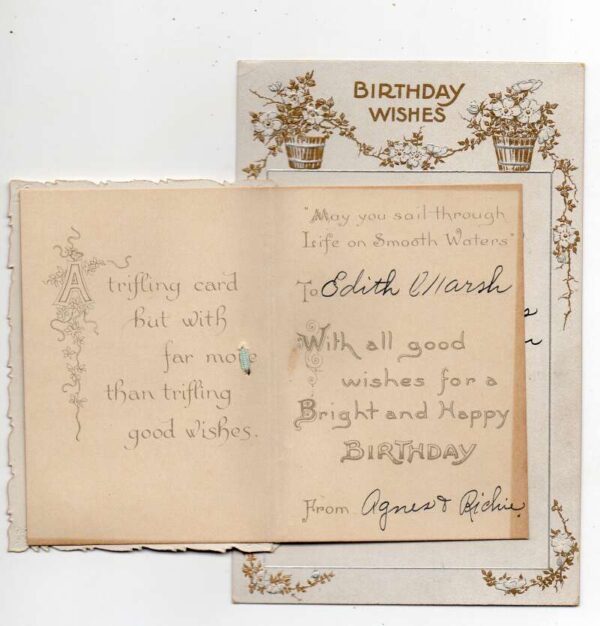 BIRTHDAY
WISHES
A
trifling card
but with
far more
than trifling
good wishes.
"May you sail through
Life on Smooth Waters"
To Edith Marsh
With all good
wishes for a
Bright and Happy
BIRTHDAY
From Agnes & Richie.